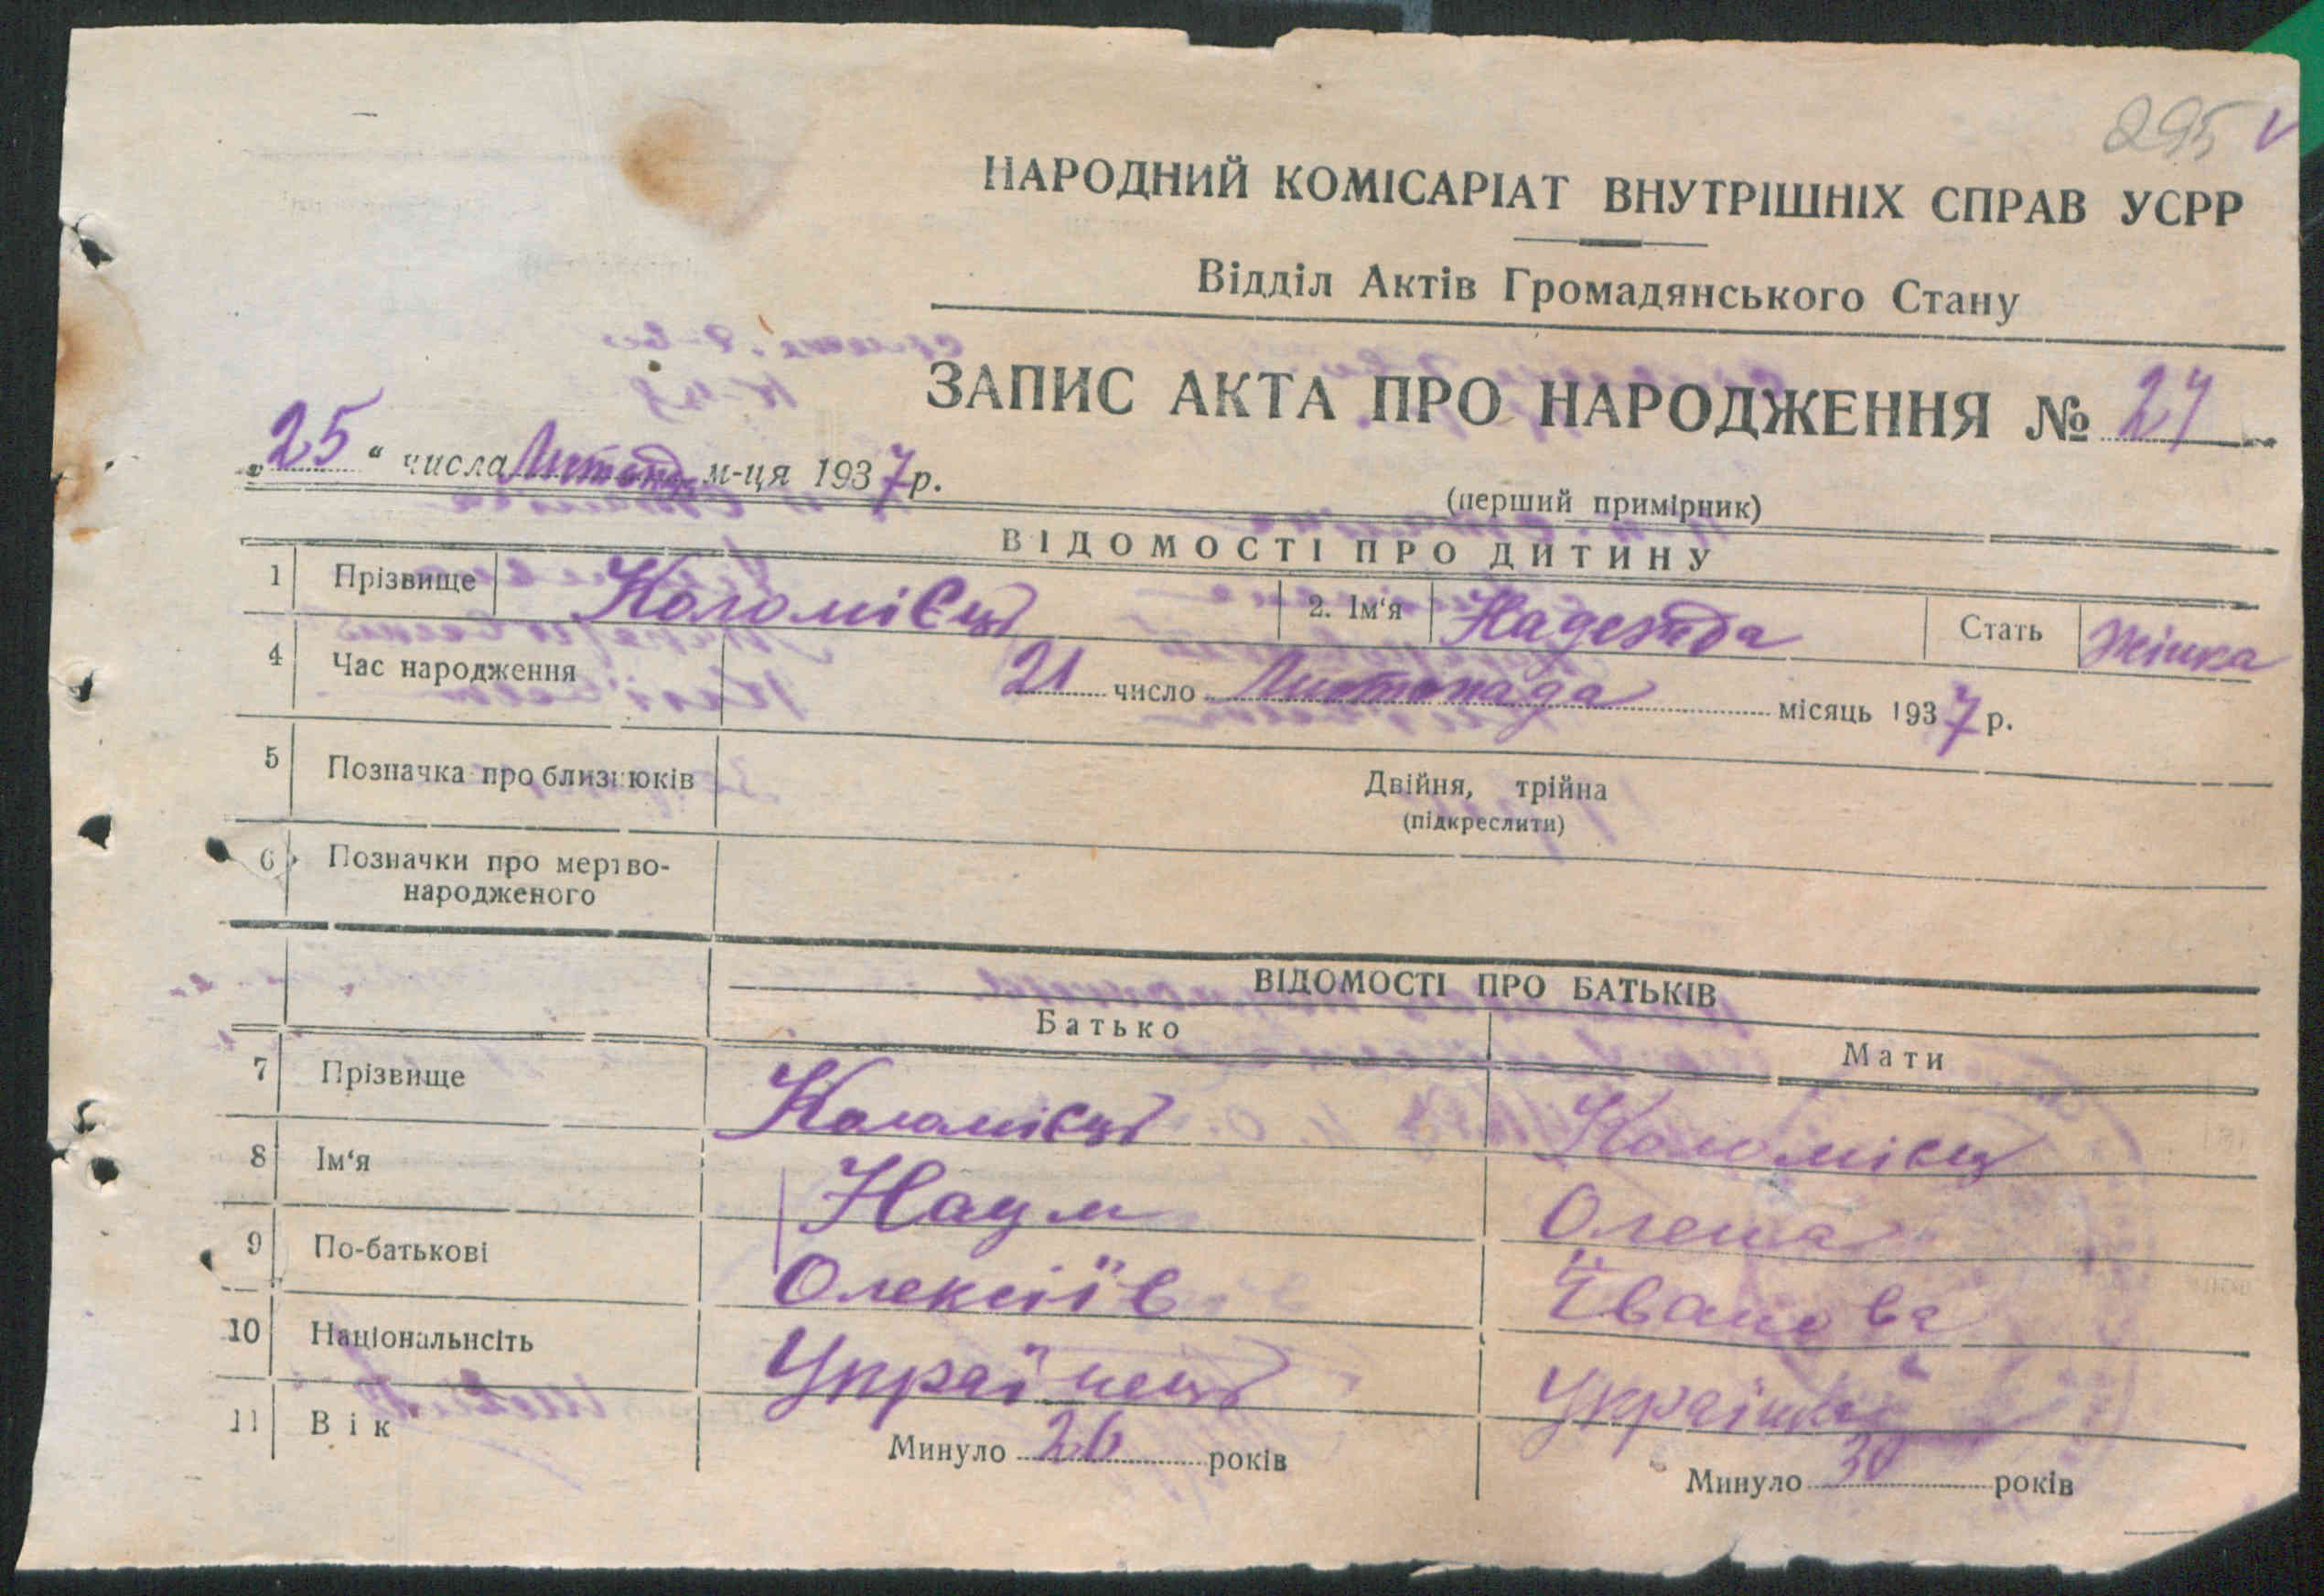 295 V
НАРОДНИЙ КОМІСАРІАТ ВНУТРІШНІХ СПРАВ УСРР
Відділ Актів Громадянського Стану
ЗАПИС АКТА ПРО НАРОДЖЕННЯ № 27
„25“ числа Листопад м-ця 1937 р.
(перший примірник)
ВІДОМОСТІ ПРО ДИТИНУ
1 Прізвище Коломієць 2. Ім‘я Надежда Стать Жінка
4 Час народження 21 число Листопада місяць 1937 р.
5 Позначка про близнюків Двійня, трійна
(підкреслити)
6 Позначки про мертво-
народженого
ВІДОМОСТІ ПРО БАТЬКІВ
Батько Мати
7 Прізвище Коломієць Коломієц
8 Ім‘я Наум
9 По-батькові Олексіїв Їванова
10 Національнсіть Українець Українка
11 Вік Минуло 26 років Минуло 30 років